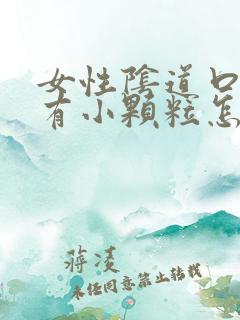 女性陰道口
有小顆粒怎
蔣凌
未任同意禁止转载